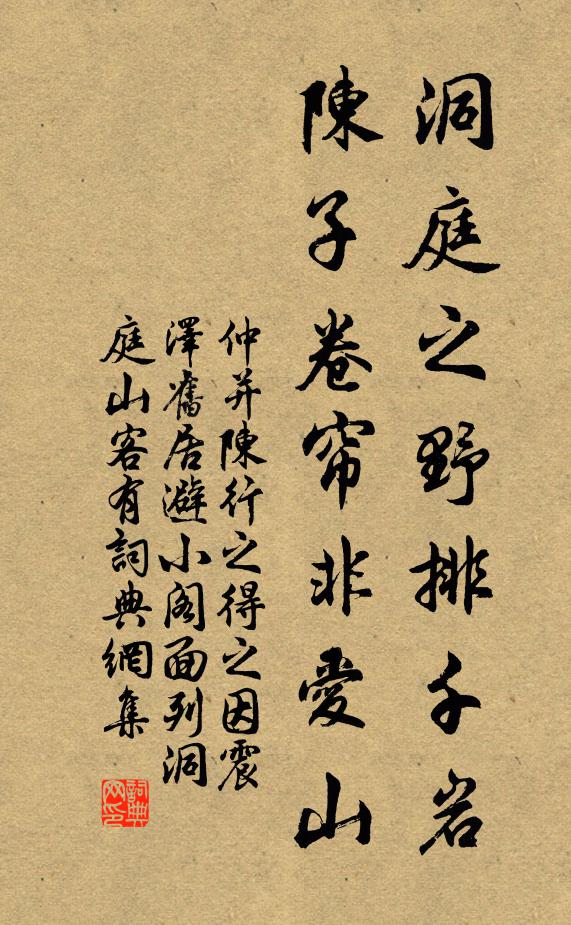 洞庭之野排千岩
陳子卷帘非愛山
仲并陳行之得之因震
澤舊居避小阁面列洞
庭山客有詞典網集
詞典网印